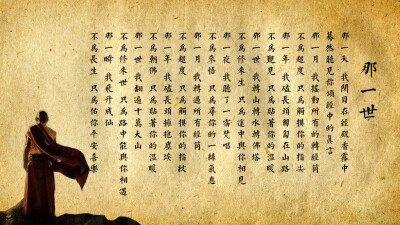 那一世
那一天 我閉目在經殿香霧中
驀然聽見你頌經中的真言
那一月 我搖動所有的轉經筒
不為超度 只為觸摸你的指尖
那一年 我磕長頭匍匐在山路
不為覲見 只為貼著你的溫暖
那一世 我轉山轉水轉佛塔
不為修來生 只為途中與你相見
那一夜 我聽了一宿梵唱
不為參悟 只為尋你的一絲氣息
那一月 我轉過所有經筒
不為超度 只為觸摸你的指紋
那一年 我磕長頭擁抱塵埃
不為朝佛 只為貼著你的溫暖
那一世 我翻遍十萬大山
不為修來世 只為路中能與你相遇
那一瞬 我飛升成仙
不為長生 只為佑你平安喜樂